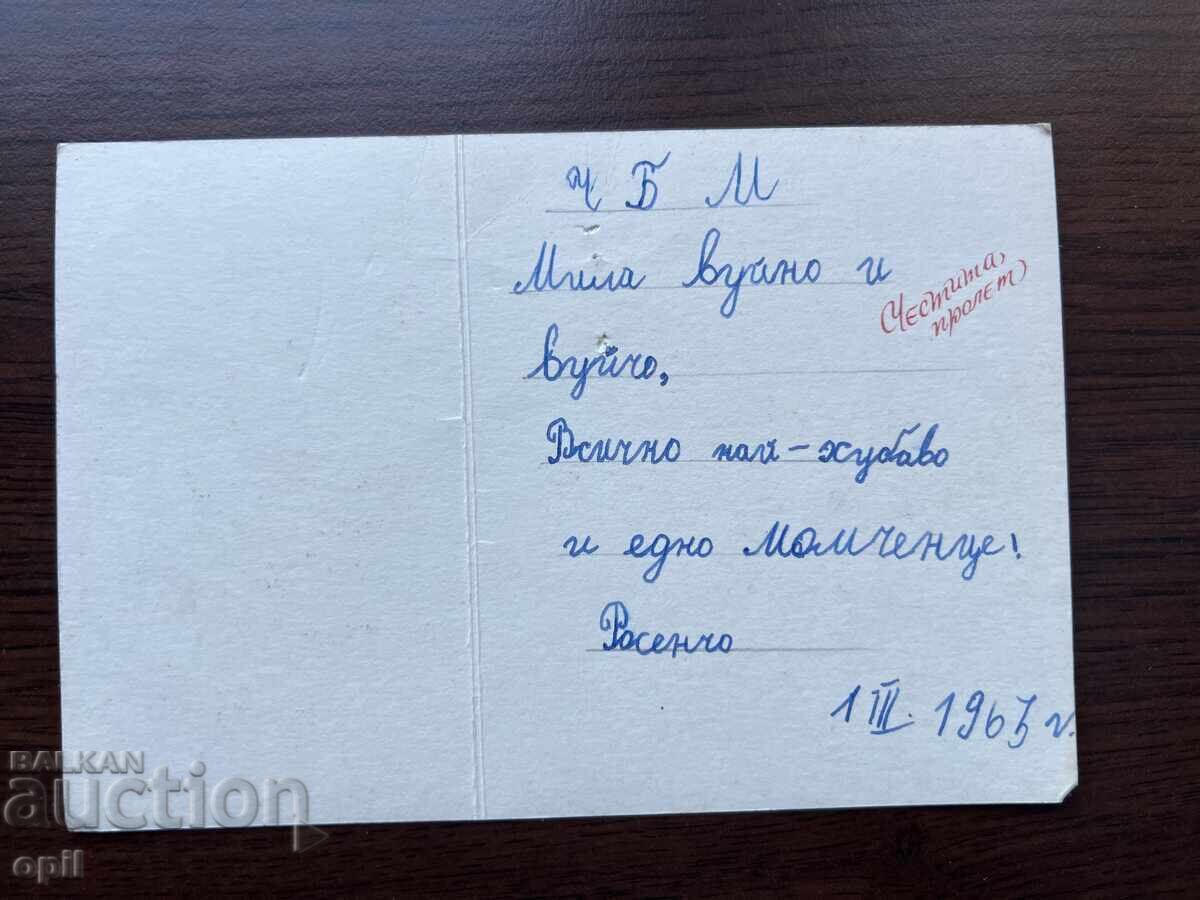 Ч Б М
Мила вуйно и
вуйчо,
Честита
пролет
Всично най-хубаво
и едно момченце!
Росенчо
1 III. 1963 г.
BALKAN
auction
opil